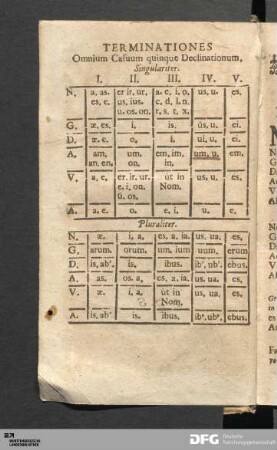 TERMINATIONES
Omnium Casuum quinque Declinationum,
Singulariter.
I. II. III. IV. V.
N. a. as. er ir. ur. a. e. i. o. us. u. es.
es, e. us, ius. c. d. l. n.
u. os. on. r. s. t. x.
G. æ. es. i. is. ûs. u. ei.
D. æ. e. o. i. ui. u. ei.
A. am. um. em. im. um. u. em.
an. en. on. in.
V. a. e. er. ir. ur. ut in us. u. es.
e. i. on. Nom.
û. os.
A. a. e. o. e. i. u. e.
Pluraliter.
N. æ. i, a, es. a. ia. us. ua. es.
G. arum. orum. um, ium uum. erum
D. is, abꝰ. is. ibus. ibꝰ, ubꝰ ebus.
A. as. os. a, es. a. ia. us. ua. es.
V. æ. i, a, ut in us. ua. es,
Nom.
A. is, abꝰ is. ibus. ibꝰ. ubꝰ. ebus.
DFG Deutsche
Forschungsgemeinschaft